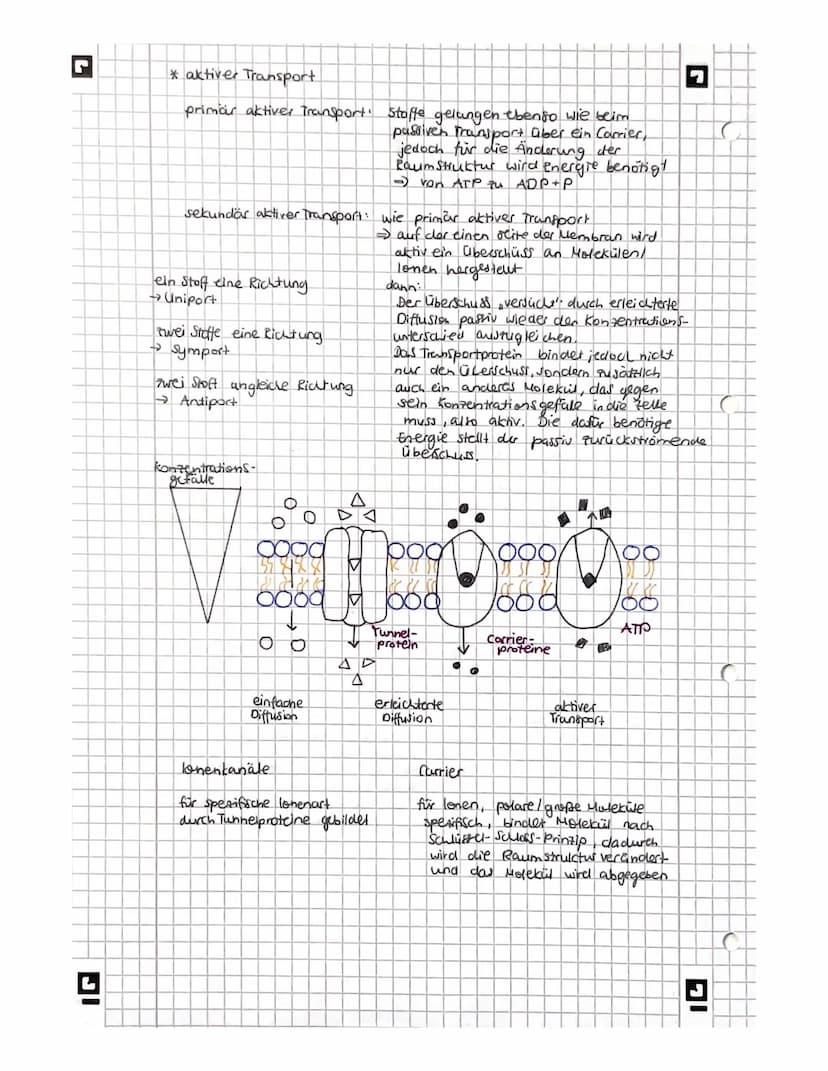 * aktiver Transport
primär aktiver Transport: Stoffe gelangen ebenso wie beim
passiven Transport über ein Carrier,
jedoch für die Änderung der
Raumstruktur wird Energie benötigt
→ von ATP zu ADP+P
sekundär aktiver Transport: wie primär aktiver Transport
⇒ auf der einen Seite der Membran wird
aktiv ein Überschuss an Molekülen/
Ionen hergestellt
dann:
Der Überschuss „versucht“ durch erleichterte
Diffusion passiv wieder den Konzentrations-
unterschied auszugleichen.
Das Transportprotein bindet jedoch nicht
nur den Überschuss, sondern zusätzlich
auch ein anderes Molekül, das gegen
sein Konzentrationsgefälle in die Zelle
muss, also aktiv. Die dafür benötige
Energie stellt der passiv zurückströmende
Überschuss.
ein Stoff eine Richtung
→ Uniport
zwei Stoffe eine Richtung
→ Symport
zwei Stoff ungleiche Richtung
→ Antiport
Konzentrations-
gefälle
Tunnel-
protein
Carrier-
proteine
ATP
einfache
Diffusion
erleichterte
Diffusion
aktiver
Transport
Ionenkanäle
für spezifische Ionenart
durch Tunnelproteine gebildet
Carrier
für Ionen, polare/große Moleküle
spezifisch, bindet Molekül nach
Schlüssel-Schloss-Prinzip, dadurch
wird die Raumstruktur verändert
und das Molekül wird abgegeben